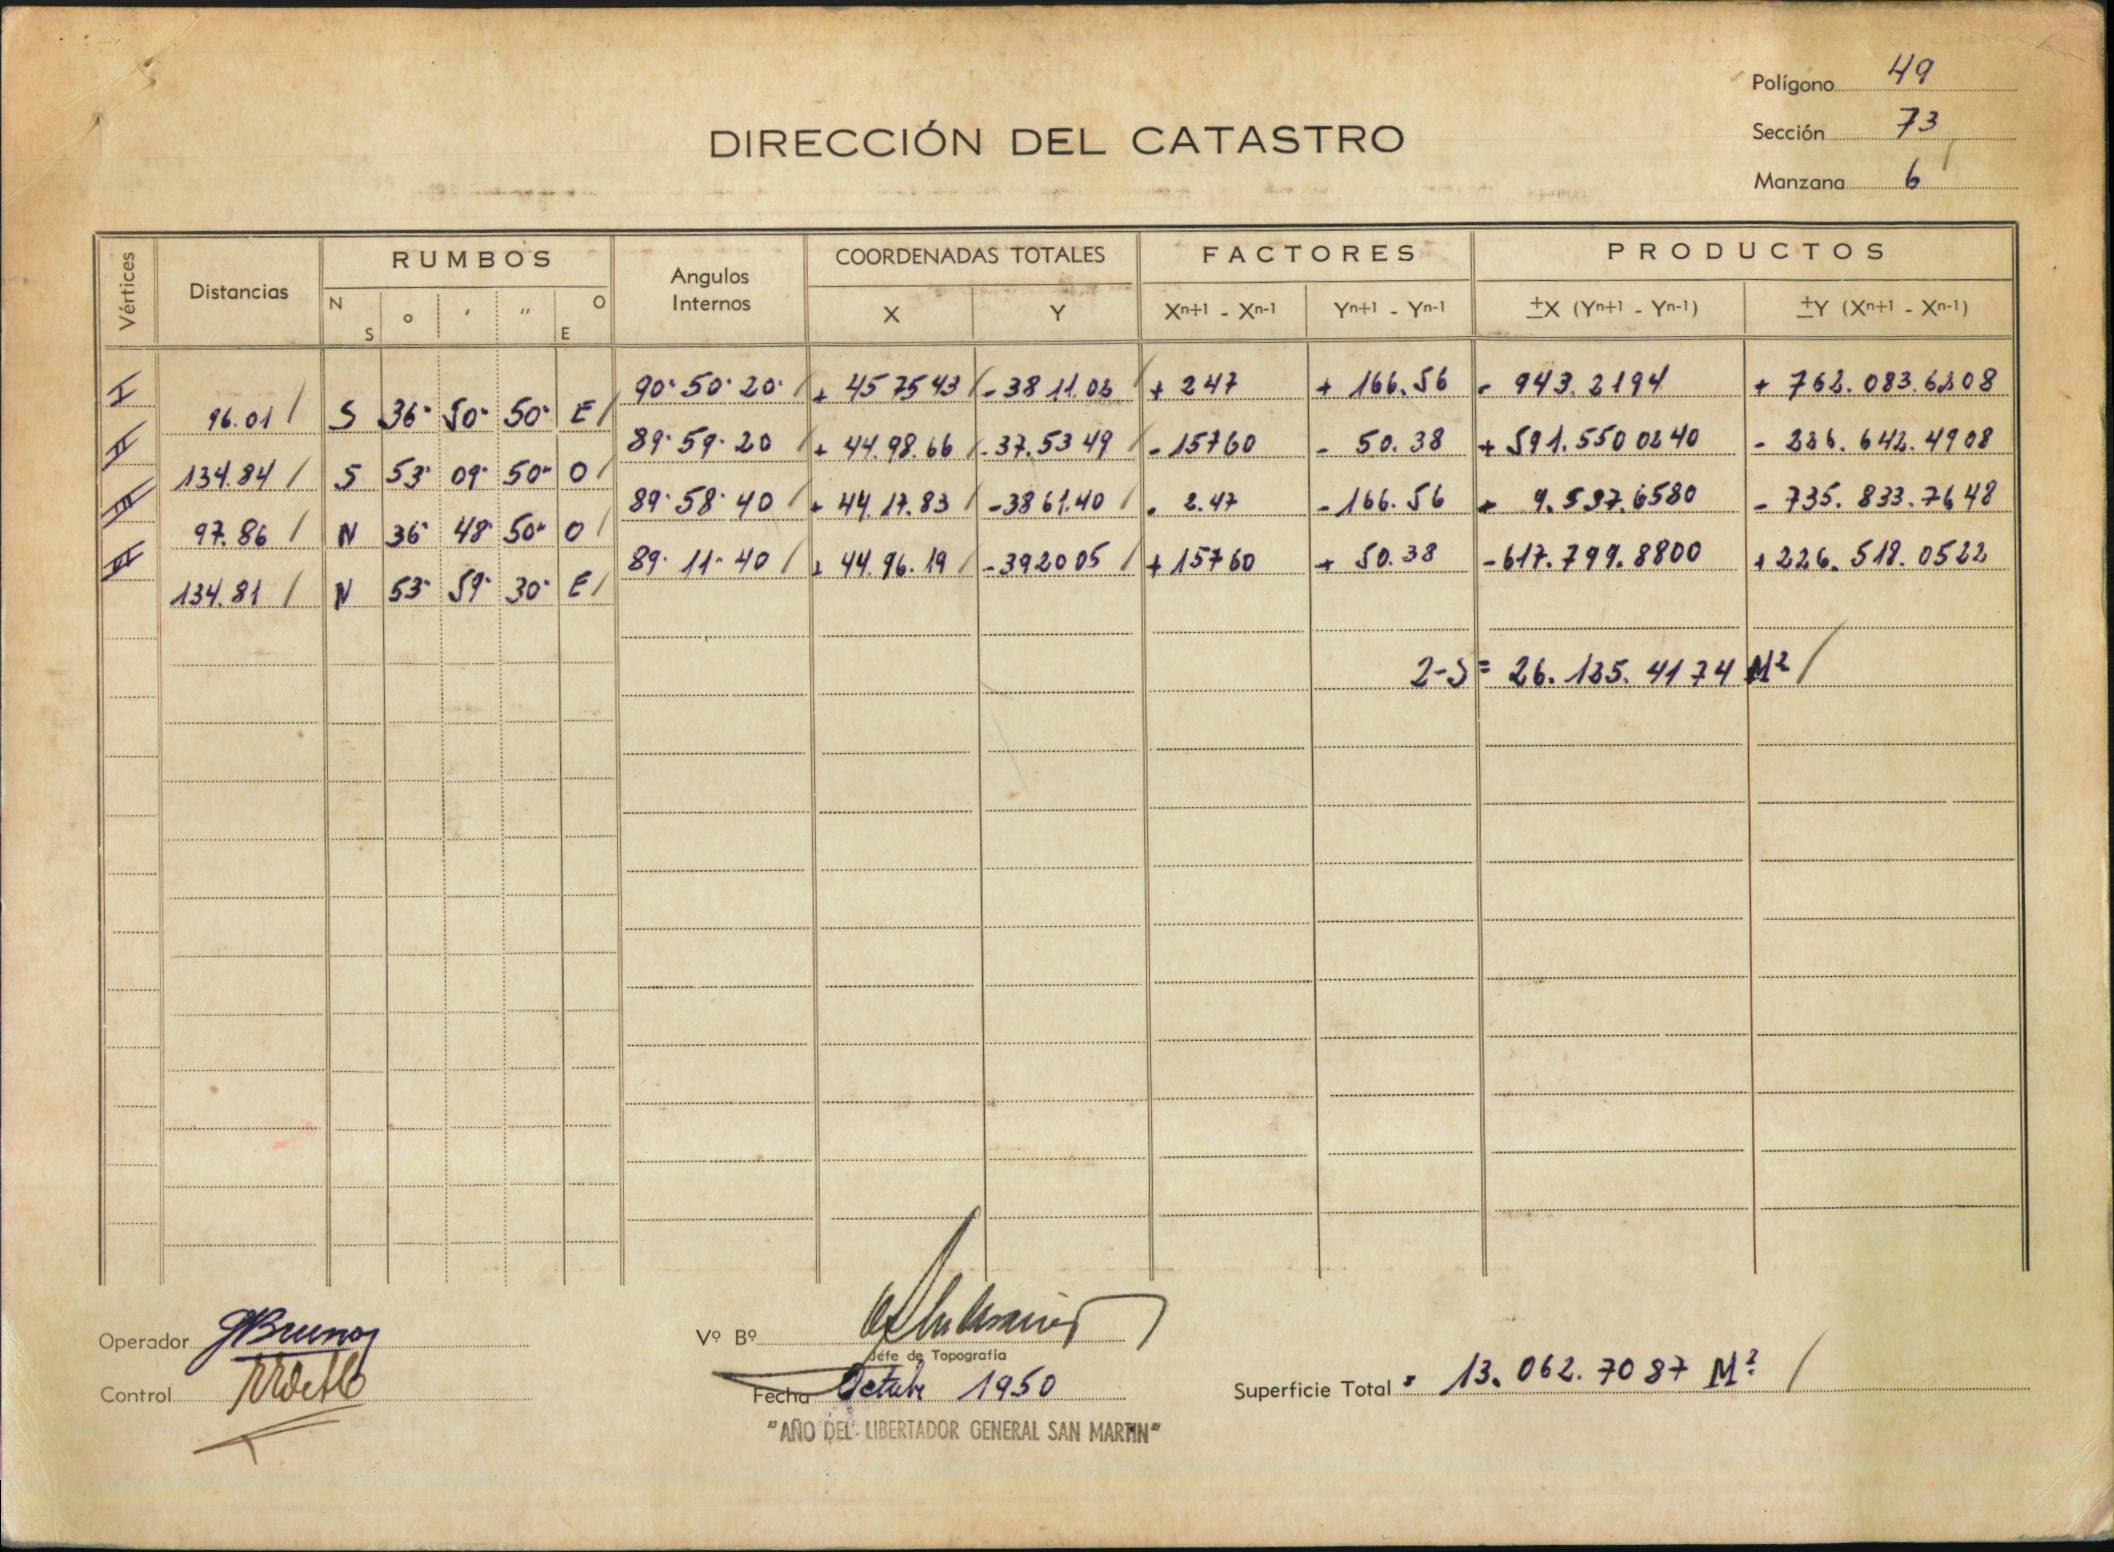 Polígono 49
DIRECCIÓN DEL CATASTRO
Sección 73
Manzana 6
Vértices
Distancias
RUMBOS
N S ° ' " O E
Angulos Internos
COORDENADAS TOTALES
X Y
FACTORES
Xn+1 - Xn-1 Yn+1 - Yn-1
PRODUCTOS
±X (Yn+1 - Yn-1) ±Y (Xn+1 - Xn-1)
I 90° 50' 20" + 45 75 43 - 38 11.02 + 2 47 + 166.56 - 943.2194 + 762.083.6208
96.01 S 36° 50' 50" E
II 89° 59' 20 + 44.98.66 - 37.53 49 - 157 60 - 50.38 + 591.550 0240 - 226.642.4908
134.84 S 53° 09' 50" O
III 89° 58' 40 + 44.17.83 - 38 61.40 - 2.47 - 166.56 + 9.537.6580 - 735.833.7648
97.86 N 36° 48' 50" O
IV 89° 11' 40 + 44.96.19 - 39 20 05 + 157 60 + 50.38 - 617.799.8800 + 226.518.0522
134.81 N 53° 59' 30" E
2-S = 26.125.41 74 M²
Operador GBruno
Vº Bº
Jefe de Topografía
Control
Fecha Octubre 1950
Superficie Total 13.062.70 87 M²
"AÑO DEL LIBERTADOR GENERAL SAN MARTIN"